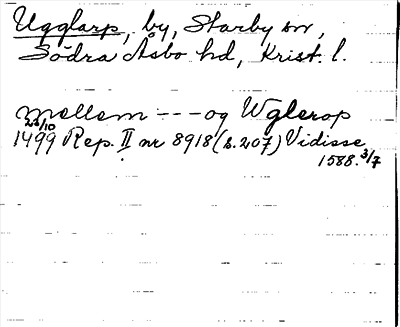 Ugglarp, by, Starby sn,
Södra Åsbo hd, Krist. l.
mellem --- og Wglerop
23/10
1499 Rep. II nr 8918 (s. 207) Vidisse
1588. 3/7